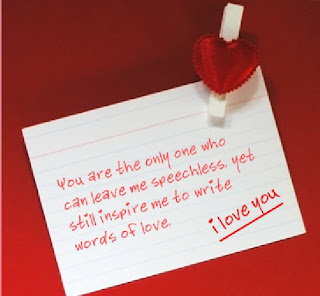 You are the only one who
can leave me speechless, yet
still inspire me to write
words of love.
i love you